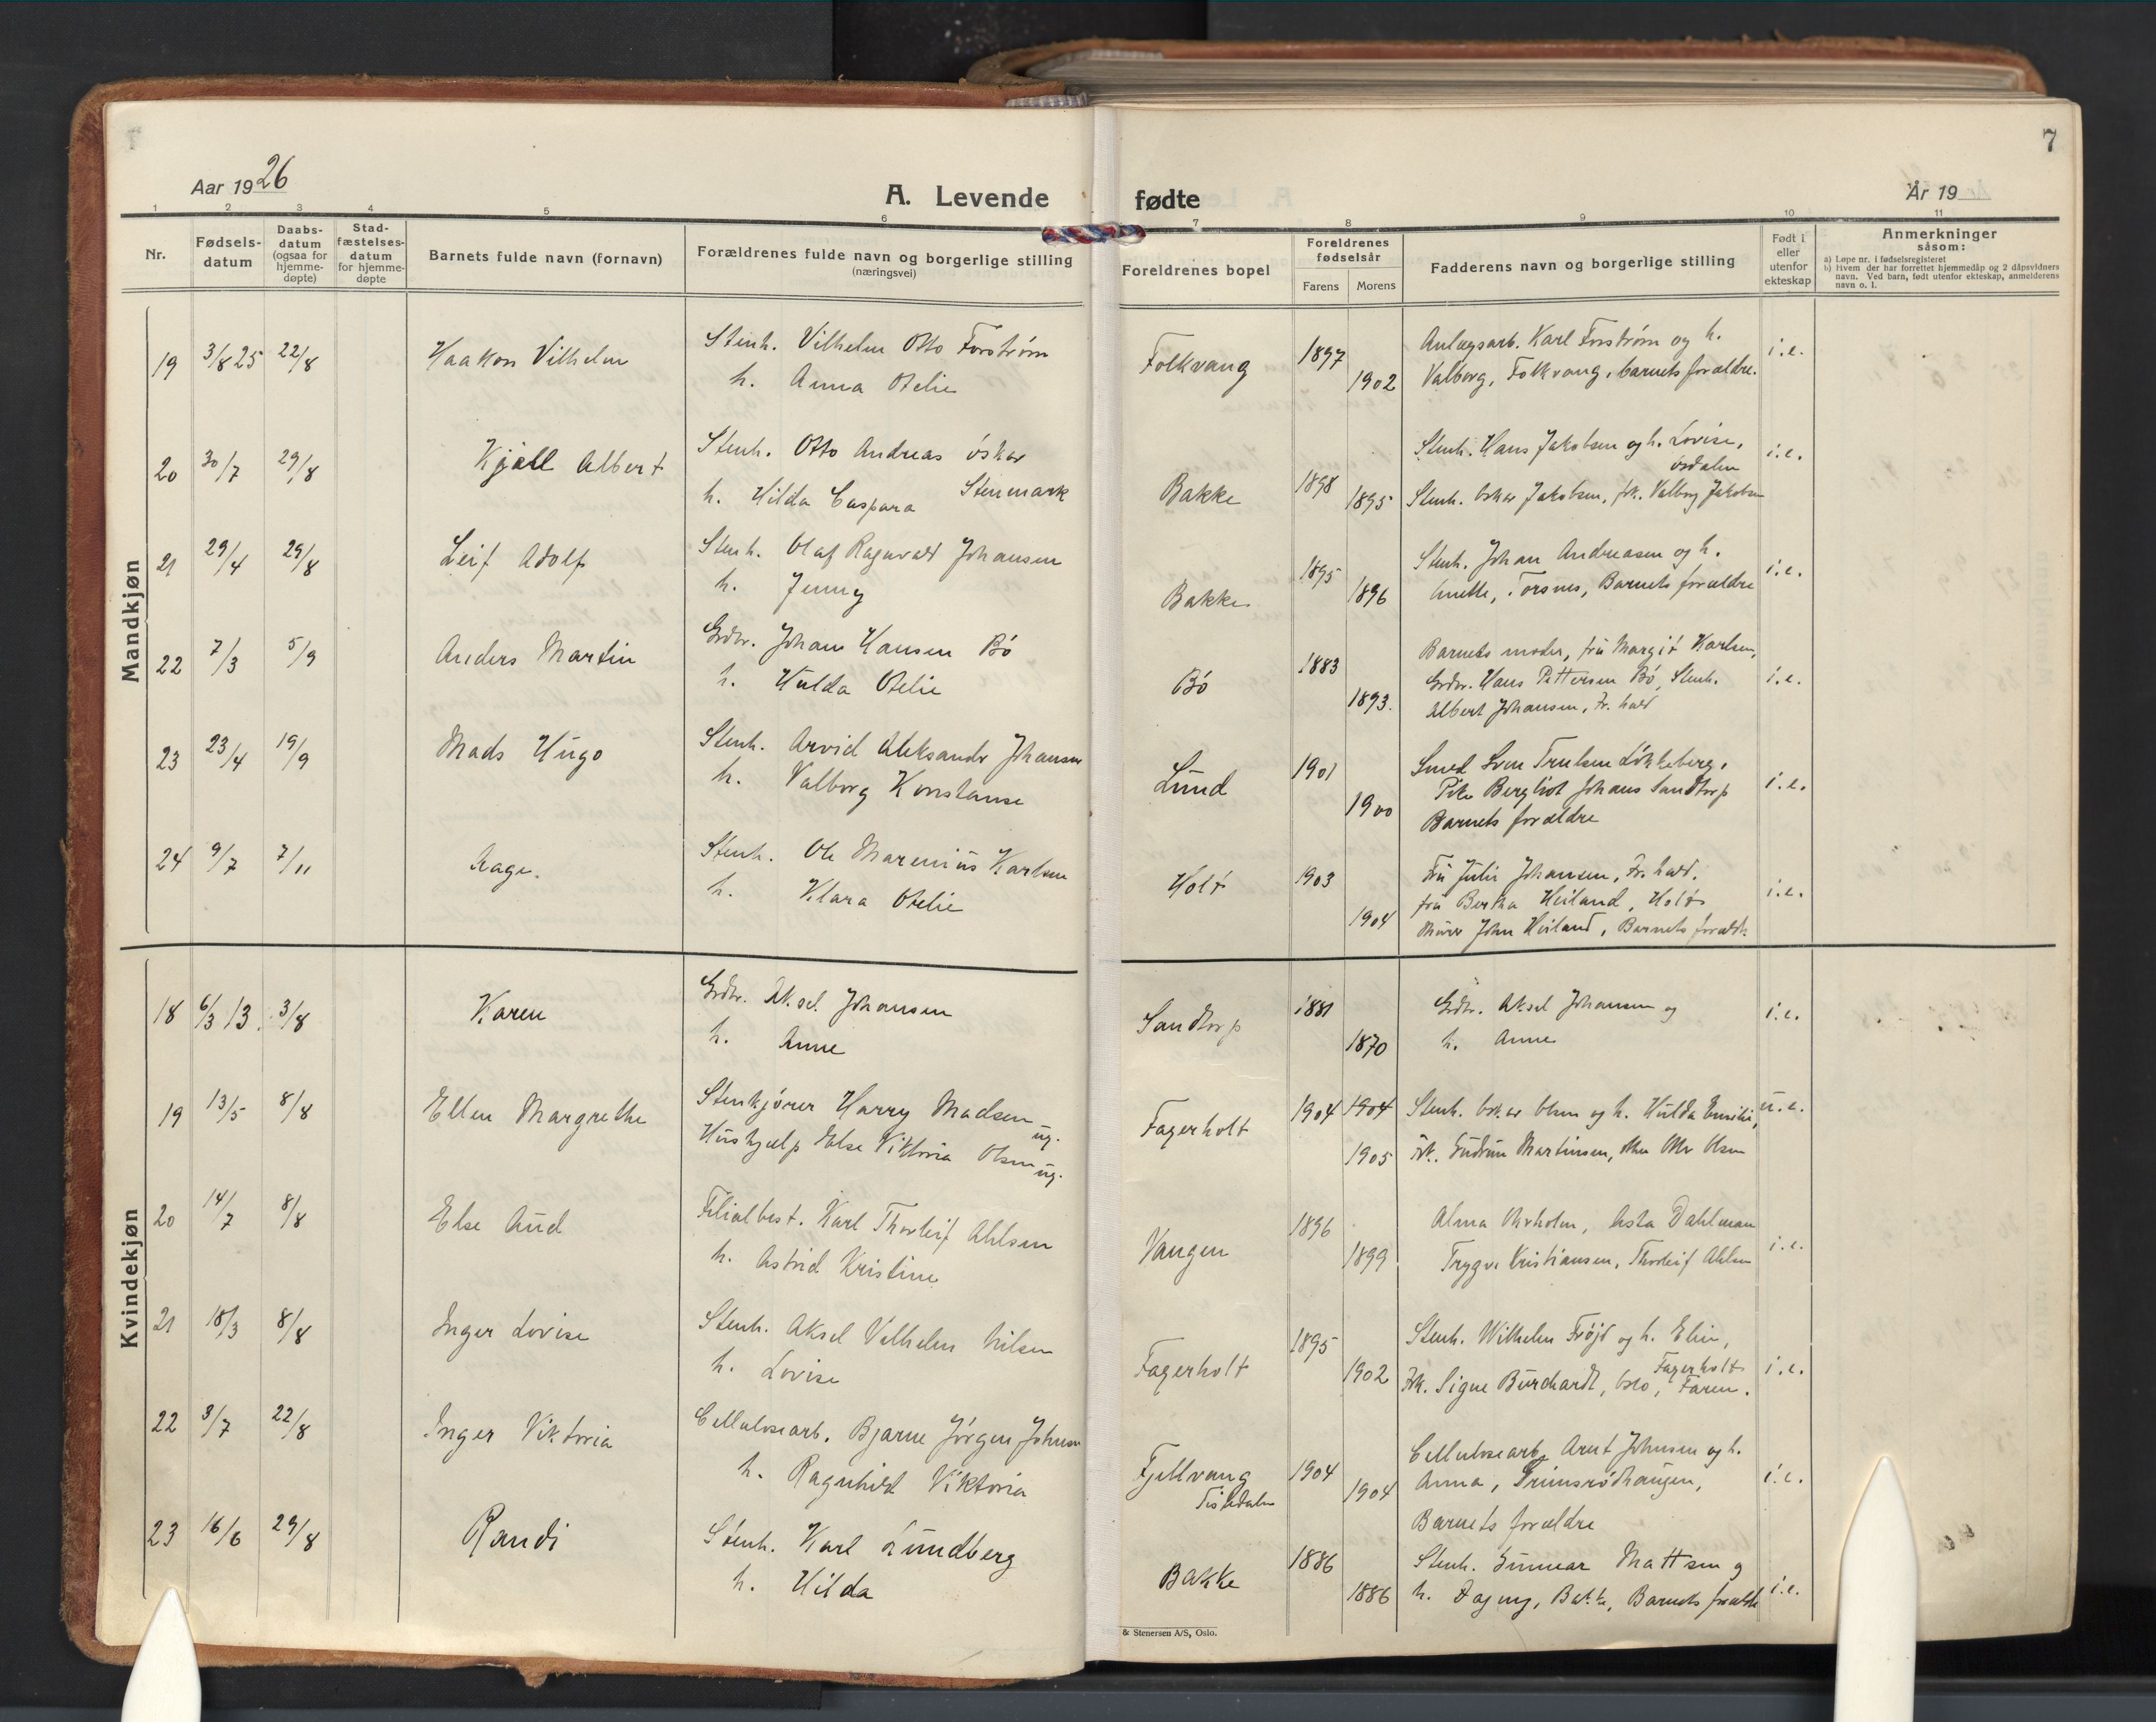 7
Aar 1926
A. Levende fødte
År 19
1 2 3 4 5 6 7 8 9 10 11
Nr.
Fødsels-datum
Daabs-datum (ogsaa for hjemme-døpte)
Stad-fæstelses-datum for hjemme-døpte
Barnets fulde navn (fornavn)
Forældrenes fulde navn og borgerlige stilling
(næringsvei)
Foreldrenes bopel
Foreldrenes fødselsår
Farens Morens
Fadderens navn og borgerlige stilling
Født i eller utenfor ekteskap
Anmerkninger
såsom:
a) Løpe nr. i fødselsregisteret
b) Hvem der har forrettet hjemmedåp og 2 dåpsvidners
navn. Ved barn, født utenfor ekteskap, anmelderens
navn o. l.
Mandkjøn
19 3/8 25 22/8 Haakon Vilhelm Stenh. Vilhelm Otto Forstrøm Folkvang 1897 Anlægsarb. Karl Forstrøm og h. i.e.
h. Anna Otelie 1902 Valborg, Folkvang, barnets forældre.
20 30/7 29/8 Kjell Albert Stenh. Otto Andreas Oskar Bakke 1898 Stenh. Hans Jakobsen og h. Lovise, i.e.
Stenmark
h. Hilda Caspara 1895 Stenh. Oskar Jakobsen, frk. Valborg Jakobsen
21 29/4 29/8 Leif Adolf Stenh. Olaf Ragnvald Johansen Bakke 1895 Stenh. Johan Andreasen og h. i.e.
h. Jenny 1896 Anette, Torsnes, Barnets forældre
22 7/3 5/9 Anders Martin Grdbr. Johan Hansen Bø Bø 1883 Barnets moder, fru Margit Karlsen, i.e.
h. Hulda Otelie 1893. Grdbr. Hans Pettersen Bø, Stenh.
Albert Johansen, Fr. hald
23 23/4 19/9 Mads Hugo Stenh. Arvid Aleksander Johansen Lund 1901 Smed Sven Trulsen Løkkeberg, i.e.
h. Valborg Konstanse 1900 Pike Bergliot Johans Sandtorp
Barnets forældre
24 9/7 7/11 Aage. Stenh. Ole Marenius Karlsen Holt 1903 Fru Julie Johansen, Fr. hald. i.e.
h. Klara Otelie 1904 fru Bertha Heiland, Holt
Murer John Heiland, Barnets forældr.
Kvindekjøn
18 6/3 13. 3/8 Karen Grdbr. Aksel Johansen Sandtorp 1881 Grdbr. Aksel Johansen og i.e.
h. Anne 1870 h. Anne
19 13/5 8/8 Ellen Margrethe Stenkjører Harry Madsen ug. Fagerholt 1904 1904 Stenh. Oskar Olsen og h. Hulda Emilie, u.e.
Hushjælp Else Viktoria Olsen ug. 1905 Frk. Gudrun Martinsen, Olsen
20 14/7 8/8 Else Aud Filialbest. Karl Thorleif Ahlsen Vangen 1896 Alma Ørholm, Asta Dahlman i.e.
h. Astrid Kristine 1899 Trygve Kristiansen, Thorleif Ahlsen
21 18/3 8/8 Inger Lovise Stenh. Aksel Vilhelm Nilsen Fagerholt 1895 Stenh. Wilhelm Frøjd og h. Elin, i.e.
Fagerholt
h. Lovise 1902 Frk. Signe Burchardt, Oslo, Faren.
22 3/7 22/8 Inger Viktoria Cellulosearb. Bjarne Jørgen Johnsen Fjellvang 1904 Cellulosearb. Arnt Johnsen og h. i.e.
h. Ragnhild Viktoria Tistedalen 1904 Anna, Grimsrødhaugen,
Barnets forældre
23 16/6 29/8 Randi Stenh. Karl Lundberg Bakke 1886 Stenh. Gunnar Mattsen og i.e.
h. Hilda 1886 h. Dagny, Bakke, Barnets forældre
& Stenersen A/S, Oslo.